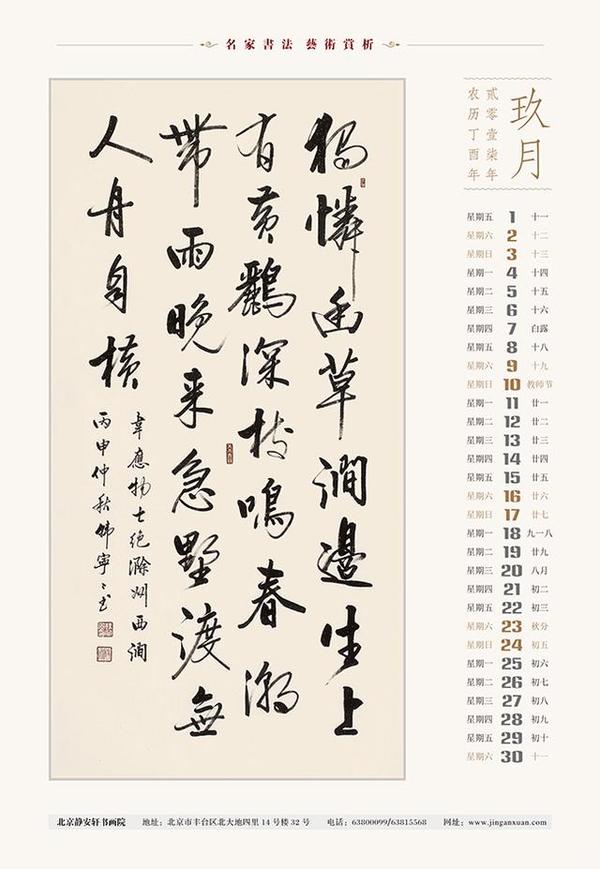 名家書法 藝術賞析
獨憐幽草澗邊生上
有黃鸝深树鳴春潮
帶雨晚来急墅渡無
人舟自横
韋應物七绝滁州西澗
丙申仲秋韩寧〻书
玖月
贰零壹柒年
农历丁酉年
星期五 1 十一
星期六 2 十二
星期日 3 十三
星期一 4 十四
星期二 5 十五
星期三 6 十六
星期四 7 白露
星期五 8 十八
星期六 9 十九
星期日 10 教师节
星期一 11 廿一
星期二 12 廿二
星期三 13 廿三
星期四 14 廿四
星期五 15 廿五
星期六 16 廿六
星期日 17 廿七
星期一 18 九一八
星期二 19 廿九
星期三 20 八月
星期四 21 初二
星期五 22 初三
星期六 23 秋分
星期日 24 初五
星期一 25 初六
星期二 26 初七
星期三 27 初八
星期四 28 初九
星期五 29 初十
星期六 30 十一
北京静安轩书画院 地址：北京市丰台区北大地四里14号楼32号 电话：63800099/63815568 网址：www.jinganxuan.com